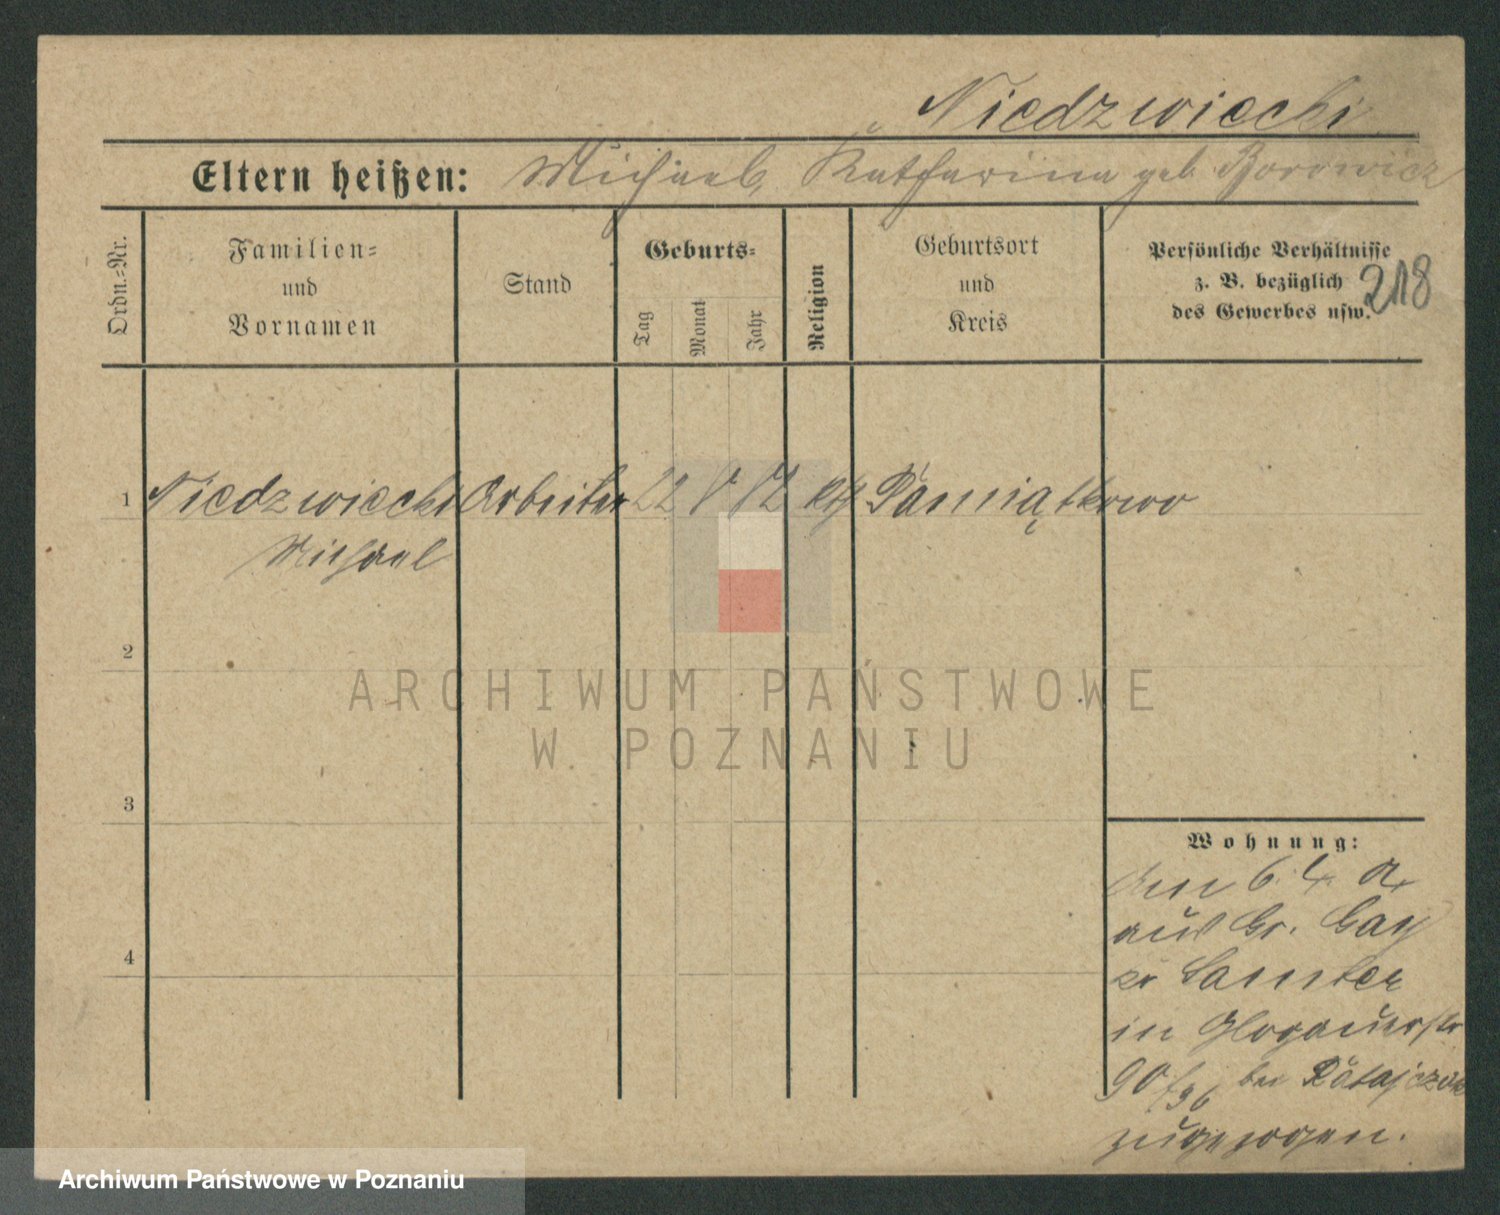 Niedzwiecki
Eltern heißen: Michael, Katharina geb. Borowicz
Ordn.-Nr.
Familien-
und
Vornamen
Stand
Geburts-
Tag
Monat
Jahr
Religion
Geburtsort
und
Kreis
Persönliche Verhältnisse
z. B. bezüglich
des Gewerbes usw.
218
1 Niedzwiecki Arbeiter 22 kth Pamiątkowo
Michael
2
ARCHIWUM PAŃSTWOWE
W POZNANIU
3
Wohnung:
6. 4.
aus Gr. Gay
Kr Samter
in Glogauerstr
4
90/96 bei Ratajczak
zugezogen.
Archiwum Państwowe w Poznaniu